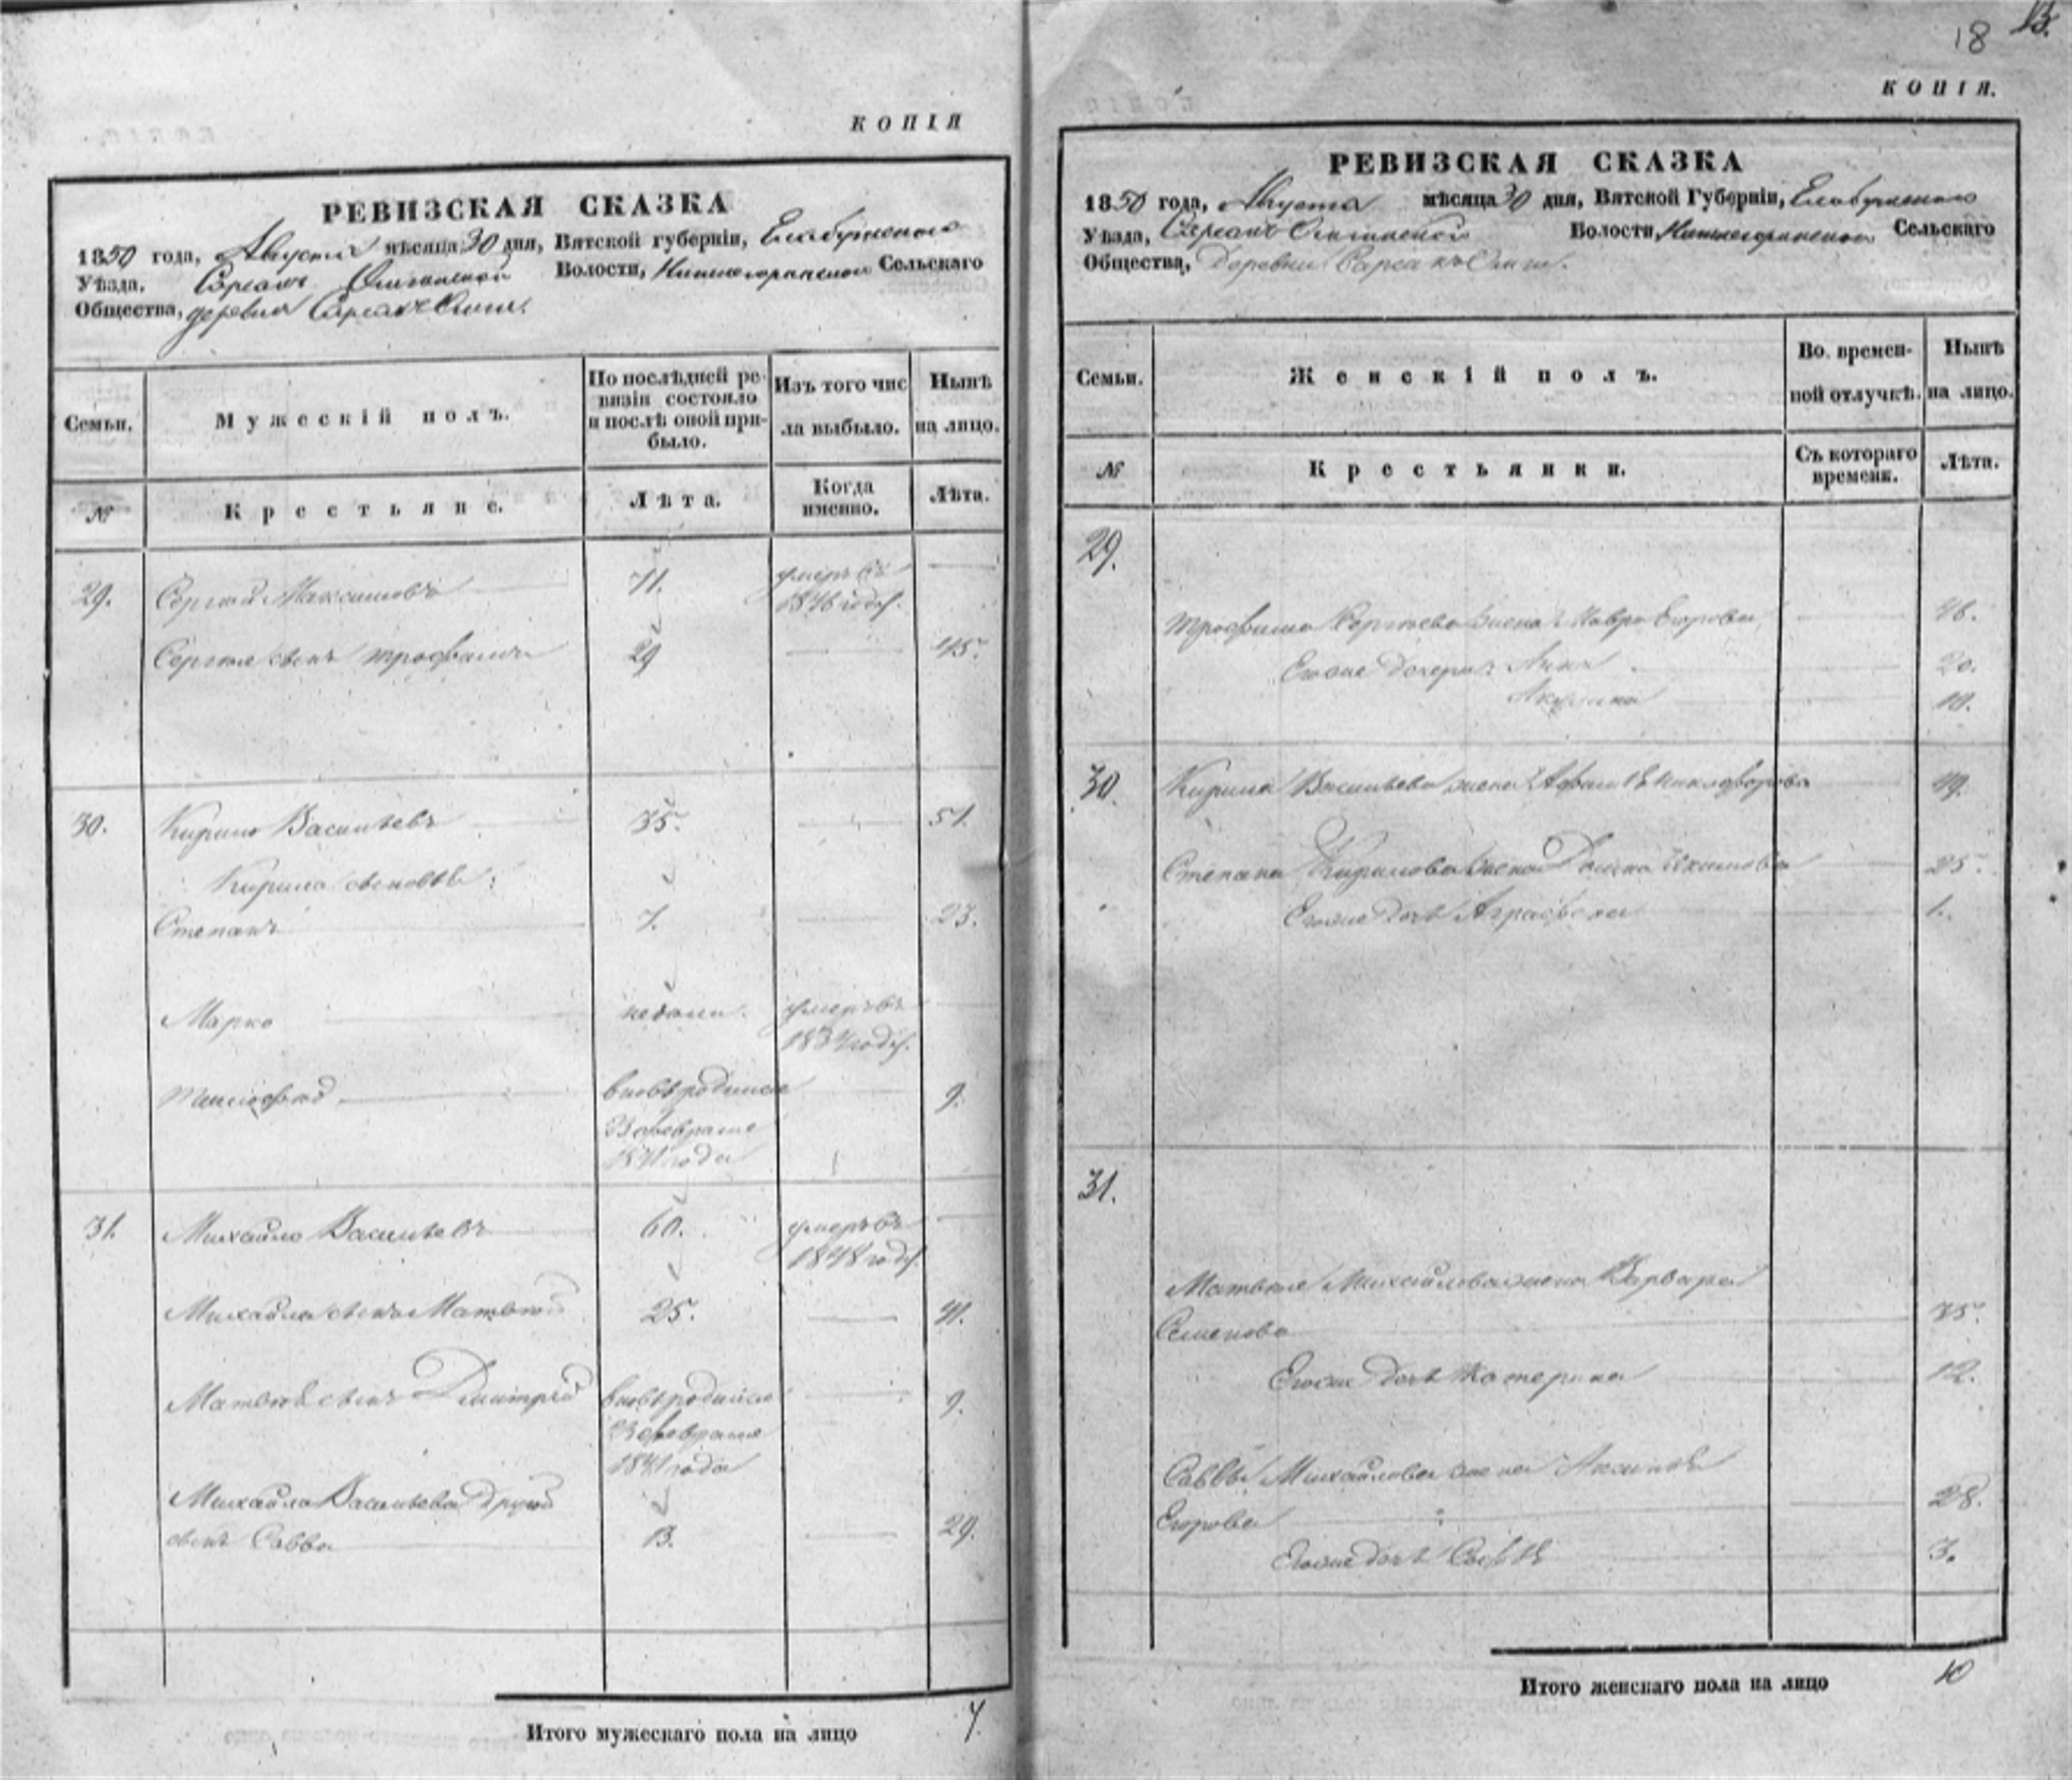 КОПІЯ
РЕВИЗСКАЯ СКАЗКА
1850 года, Августа мѣсяца 30 дня, Вятской губерніи, Елабужскаго
Уѣзда, Волости, Сельскаго
Общества, деревни
Семьи.
Мужескій полъ.
По послѣдней ре-
визіи состояло
и послѣ оной при-
было.
Изъ того чис
ла выбыло.
Нынѣ
на лицо.
№
Крестьяне.
Лѣта.
Когда
именно.
Лѣта.
29. Сергей Максимовъ 71. умеръ въ
1846 году.
Сергея сынъ Трофимъ 29 45.
30. Кирило Васильевъ 35. 51.
Кирила сыновья:
Степанъ 7. 23.
Марко недели. умеръ въ
1834 году.
вновь родился 9.
В феврале
1841 года
31. Михайло Васильевъ 60. умеръ въ
1848 году
Михайла сынъ Матвей 25. 41.
Матвея сынъ Дмитрей вновь родился 9.
В феврале
1841 года
Михайла Васильева другой
сынъ Савва 13. 29.
Итого мужескаго пола на лицо 7.
18
КОПІЯ.
РЕВИЗСКАЯ СКАЗКА
1850 года, Августа мѣсяца 30 дня, Вятской Губерніи, Елабужскаго
Уѣзда, Волости, Сельскаго
Общества, Деревни
Семьи.
Женскій полъ.
Во времен-
ной отлучкѣ.
Нынѣ
на лицо.
№
Крестьянки.
Съ котораго
времени.
Лѣта.
29.
Трофима Сергеева жена Егорова 46.
Егоже дочери: Анна 20.
Акулина
30. Кирила Васильева жена Никифорова 49.
Степана Кирилова жена 25.
Егоже дочь 1.
31.
Матвея Михайлова жена Варвара
Семенова 35.
Егоже дочь Катерина 12.
Саввы Михайлова жена
Егорова 28.
Егоже дочь 3.
Итого женскаго пола на лицо 10